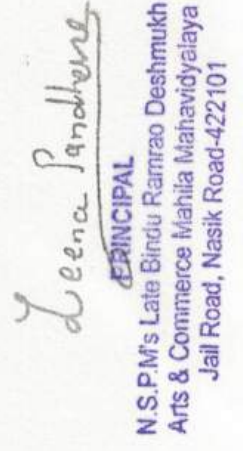 Leena Pandhare
PRINCIPAL
N.S.P.M's Late Bindu Ramrao Deshmukh
Arts & Commerce Mahila Mahavidyalaya
Jail Road, Nasik Road-422101